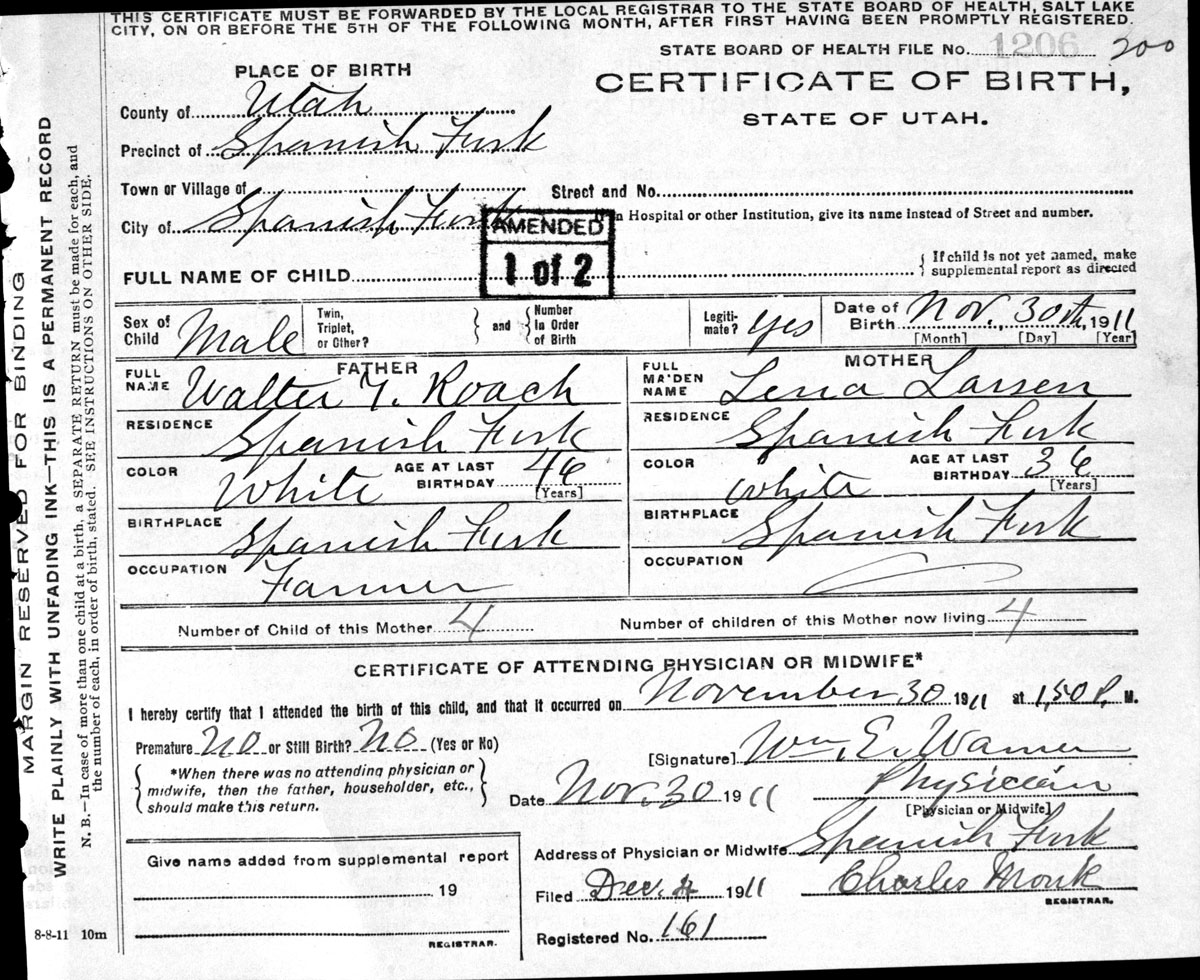 THIS CERTIFICATE MUST BE FORWARDED BY THE LOCAL REGISTRAR TO THE STATE BOARD OF HEALTH, SALT LAKE
CITY, ON OR BEFORE THE 5TH OF THE FOLLOWING MONTH, AFTER FIRST HAVING BEEN PROMPTLY REGISTERED.
STATE BOARD OF HEALTH FILE No. 1206 200
PLACE OF BIRTH
CERTIFICATE OF BIRTH,
STATE OF UTAH.
County of Utah
Precinct of Spanish Fork
Town or Village of
Street and No.
City of Spanish Fork
Hospital or other Institution, give its name instead of Street and number.
AMENDED
1 of 2
FULL NAME OF CHILD
If child is not yet named, make
supplemental report as directed
Sex of Child Male
Twin, Triplet, or Other?
and
Number In Order of Birth
Legiti-mate? yes
Date of Birth Nov. 30th, 1911
[Month] [Day] [Year]
FATHER
FULL NAME Walter T. Roach
RESIDENCE Spanish Fork
COLOR White
AGE AT LAST BIRTHDAY 46
[Years]
BIRTHPLACE Spanish Fork
OCCUPATION Farmer
MOTHER
FULL MAIDEN NAME Lena Larsen
RESIDENCE Spanish Fork
COLOR White
AGE AT LAST BIRTHDAY 36
[Years]
BIRTHPLACE Spanish Fork
OCCUPATION
Number of Child of this Mother 4
Number of children of this Mother now living 4
CERTIFICATE OF ATTENDING PHYSICIAN OR MIDWIFE*
I hereby certify that I attended the birth of this child, and that it occurred on November 30 1911 at 1,50 P. M.
Premature No or Still Birth? No (Yes or No)
[Signature] Wm. E. Warner
*When there was no attending physician or
midwife, then the father, householder, etc.,
should make this return.
Date Nov. 30 1911
Physician
[Physician or Midwife]
Give name added from supplemental report
19
REGISTRAR.
Address of Physician or Midwife Spanish Fork
Filed Dec. 4 1911
Charles Monk
REGISTRAR.
Registered No. 161
8-8-11 10m
MARGIN RESERVED FOR BINDING
WRITE PLAINLY WITH UNFADING INK—THIS IS A PERMANENT RECORD
N. B.—In case of more than one child at a birth, a SEPARATE RETURN must be made for each, and
the number of each, in order of birth, stated. SEE INSTRUCTIONS ON OTHER SIDE.